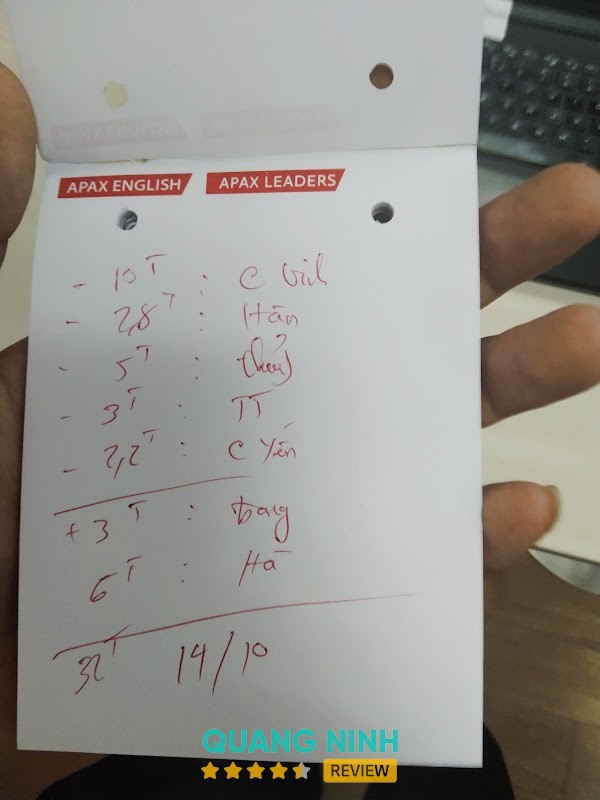 APAX ENGLISH APAX LEADERS
- 10T : C
- 2,8T : Hân
- 5T :
- 3T : TT
- 2,2T : C Yến
+ 3T : trang
6T : Hà
32T 14/10
QUANG NINH
REVIEW